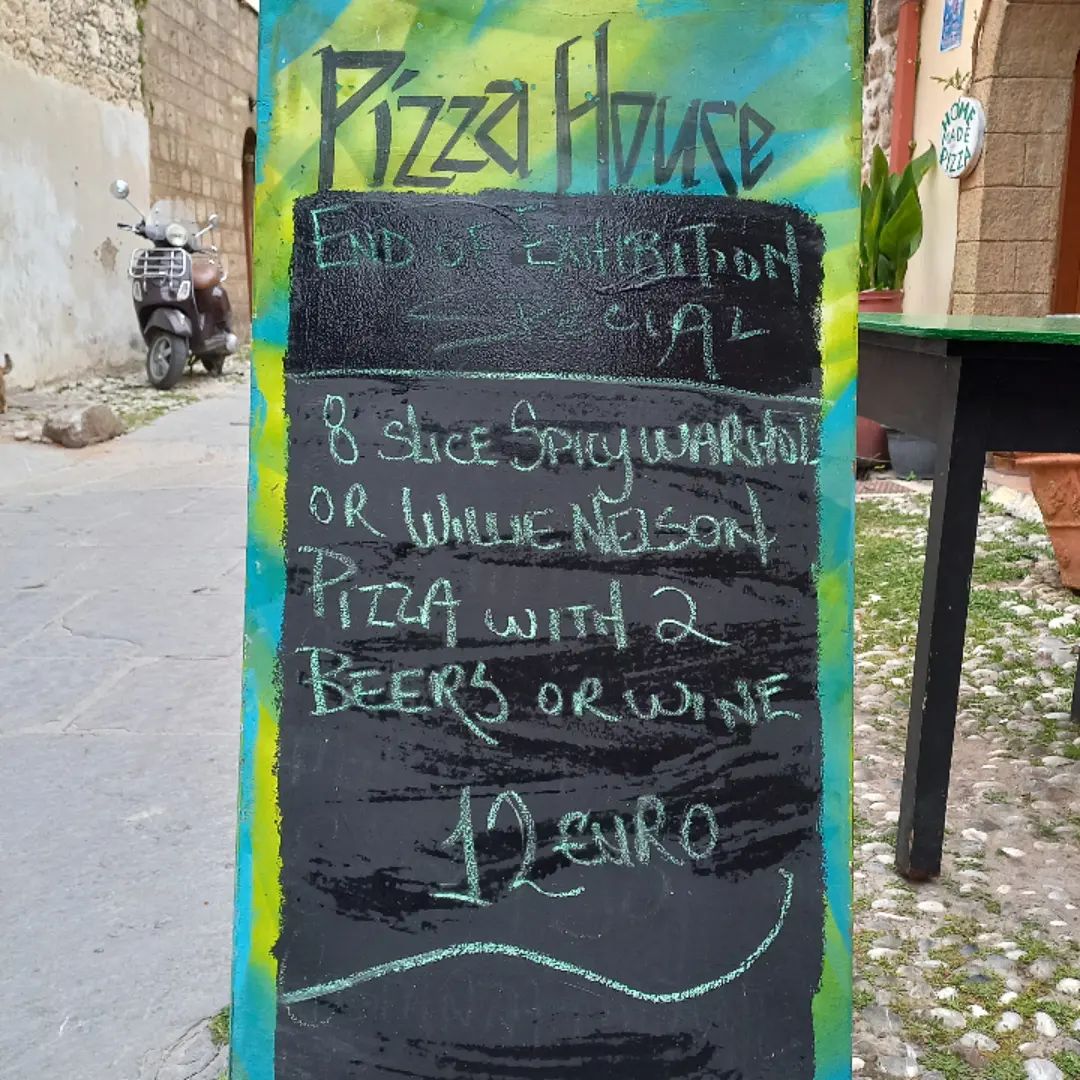 Pizza House
END OF EXHIBITION
SPECIAL
8 SLICE SPICY WARHOL
OR WILLIE NELSON
PIZZA WITH 2
BEERS OR WINE
12 EURO
HOME
MADE
PIZZA